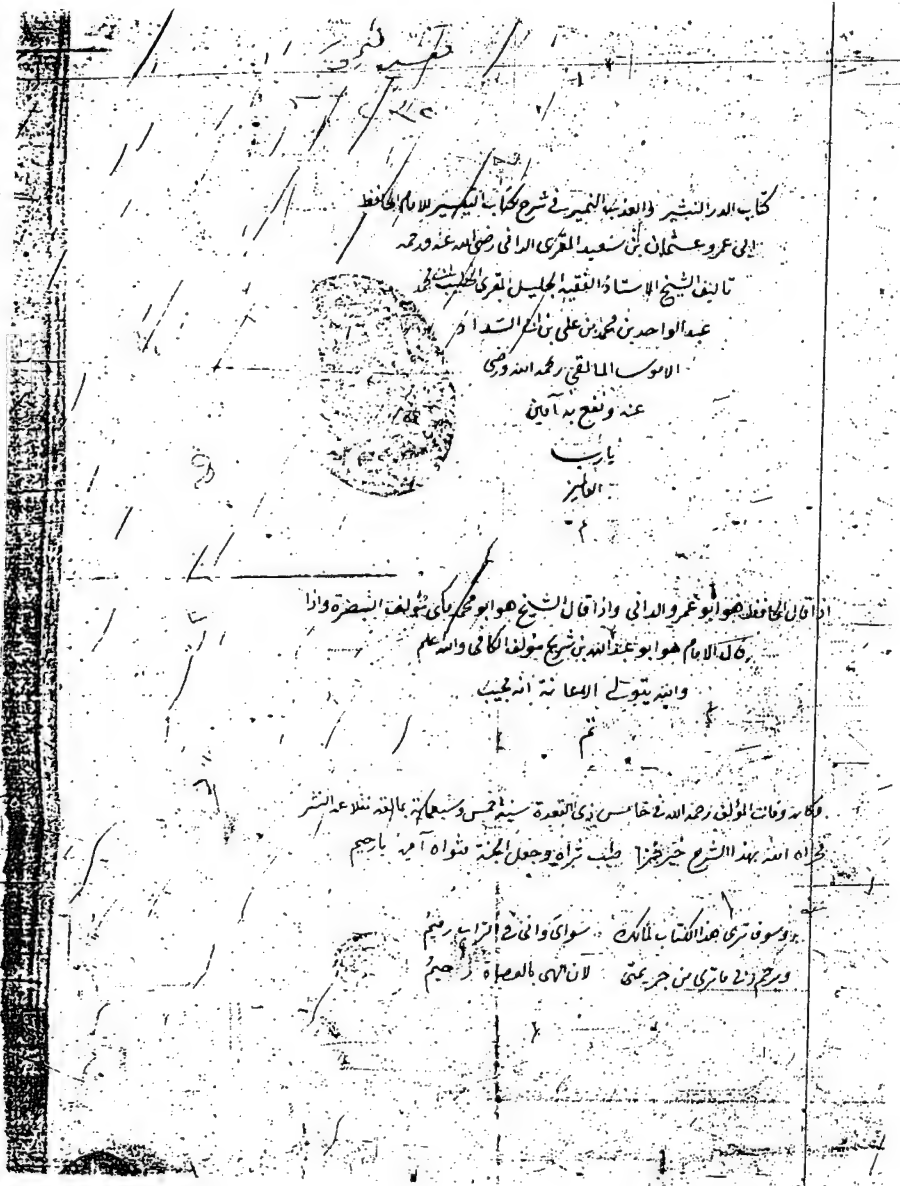 كتاب الدر النثير والعذب النمير في شرح كتاب التيسير للامام الحافظ
ابى عمرو عثمان بن سعيد المقرى الدانى رضى الله عنه ورحمه
تاليف الشيخ الاستاذ الفقيه الجليل المقرى الخطيب
عبد الواحد بن محمد بن على بن ابى السداد
الاموى المالقى رحمه الله ورضى
عنه ونفع به آمين
يارب
العالمين
م
اذا قال الحافظ هو ابو عمرو الدانى واذا قال الشيخ هو ابو محمد مكى مؤلف التبصرة واذا
قال الامام هو ابو عبد الله بن شريح مؤلف الكافى والله علم
والله يتولى الاعانة انه مجيب
تم
وكانت وفات المؤلف رحمه الله فى خامس ذى القعدة سنة خمس وسبعمائة بمالقه نقلا عن النشر
فجزاه الله بهذا الشرح خير جزا طيب ثراه وجعل الجنة مثواه آمين يارحيم
وسوف ترى هذا الكتاب لمالك سواى وانى فى التراب رميم
ويرحم ما ترى من جريمتى لان الهى بالعصاه رحيم